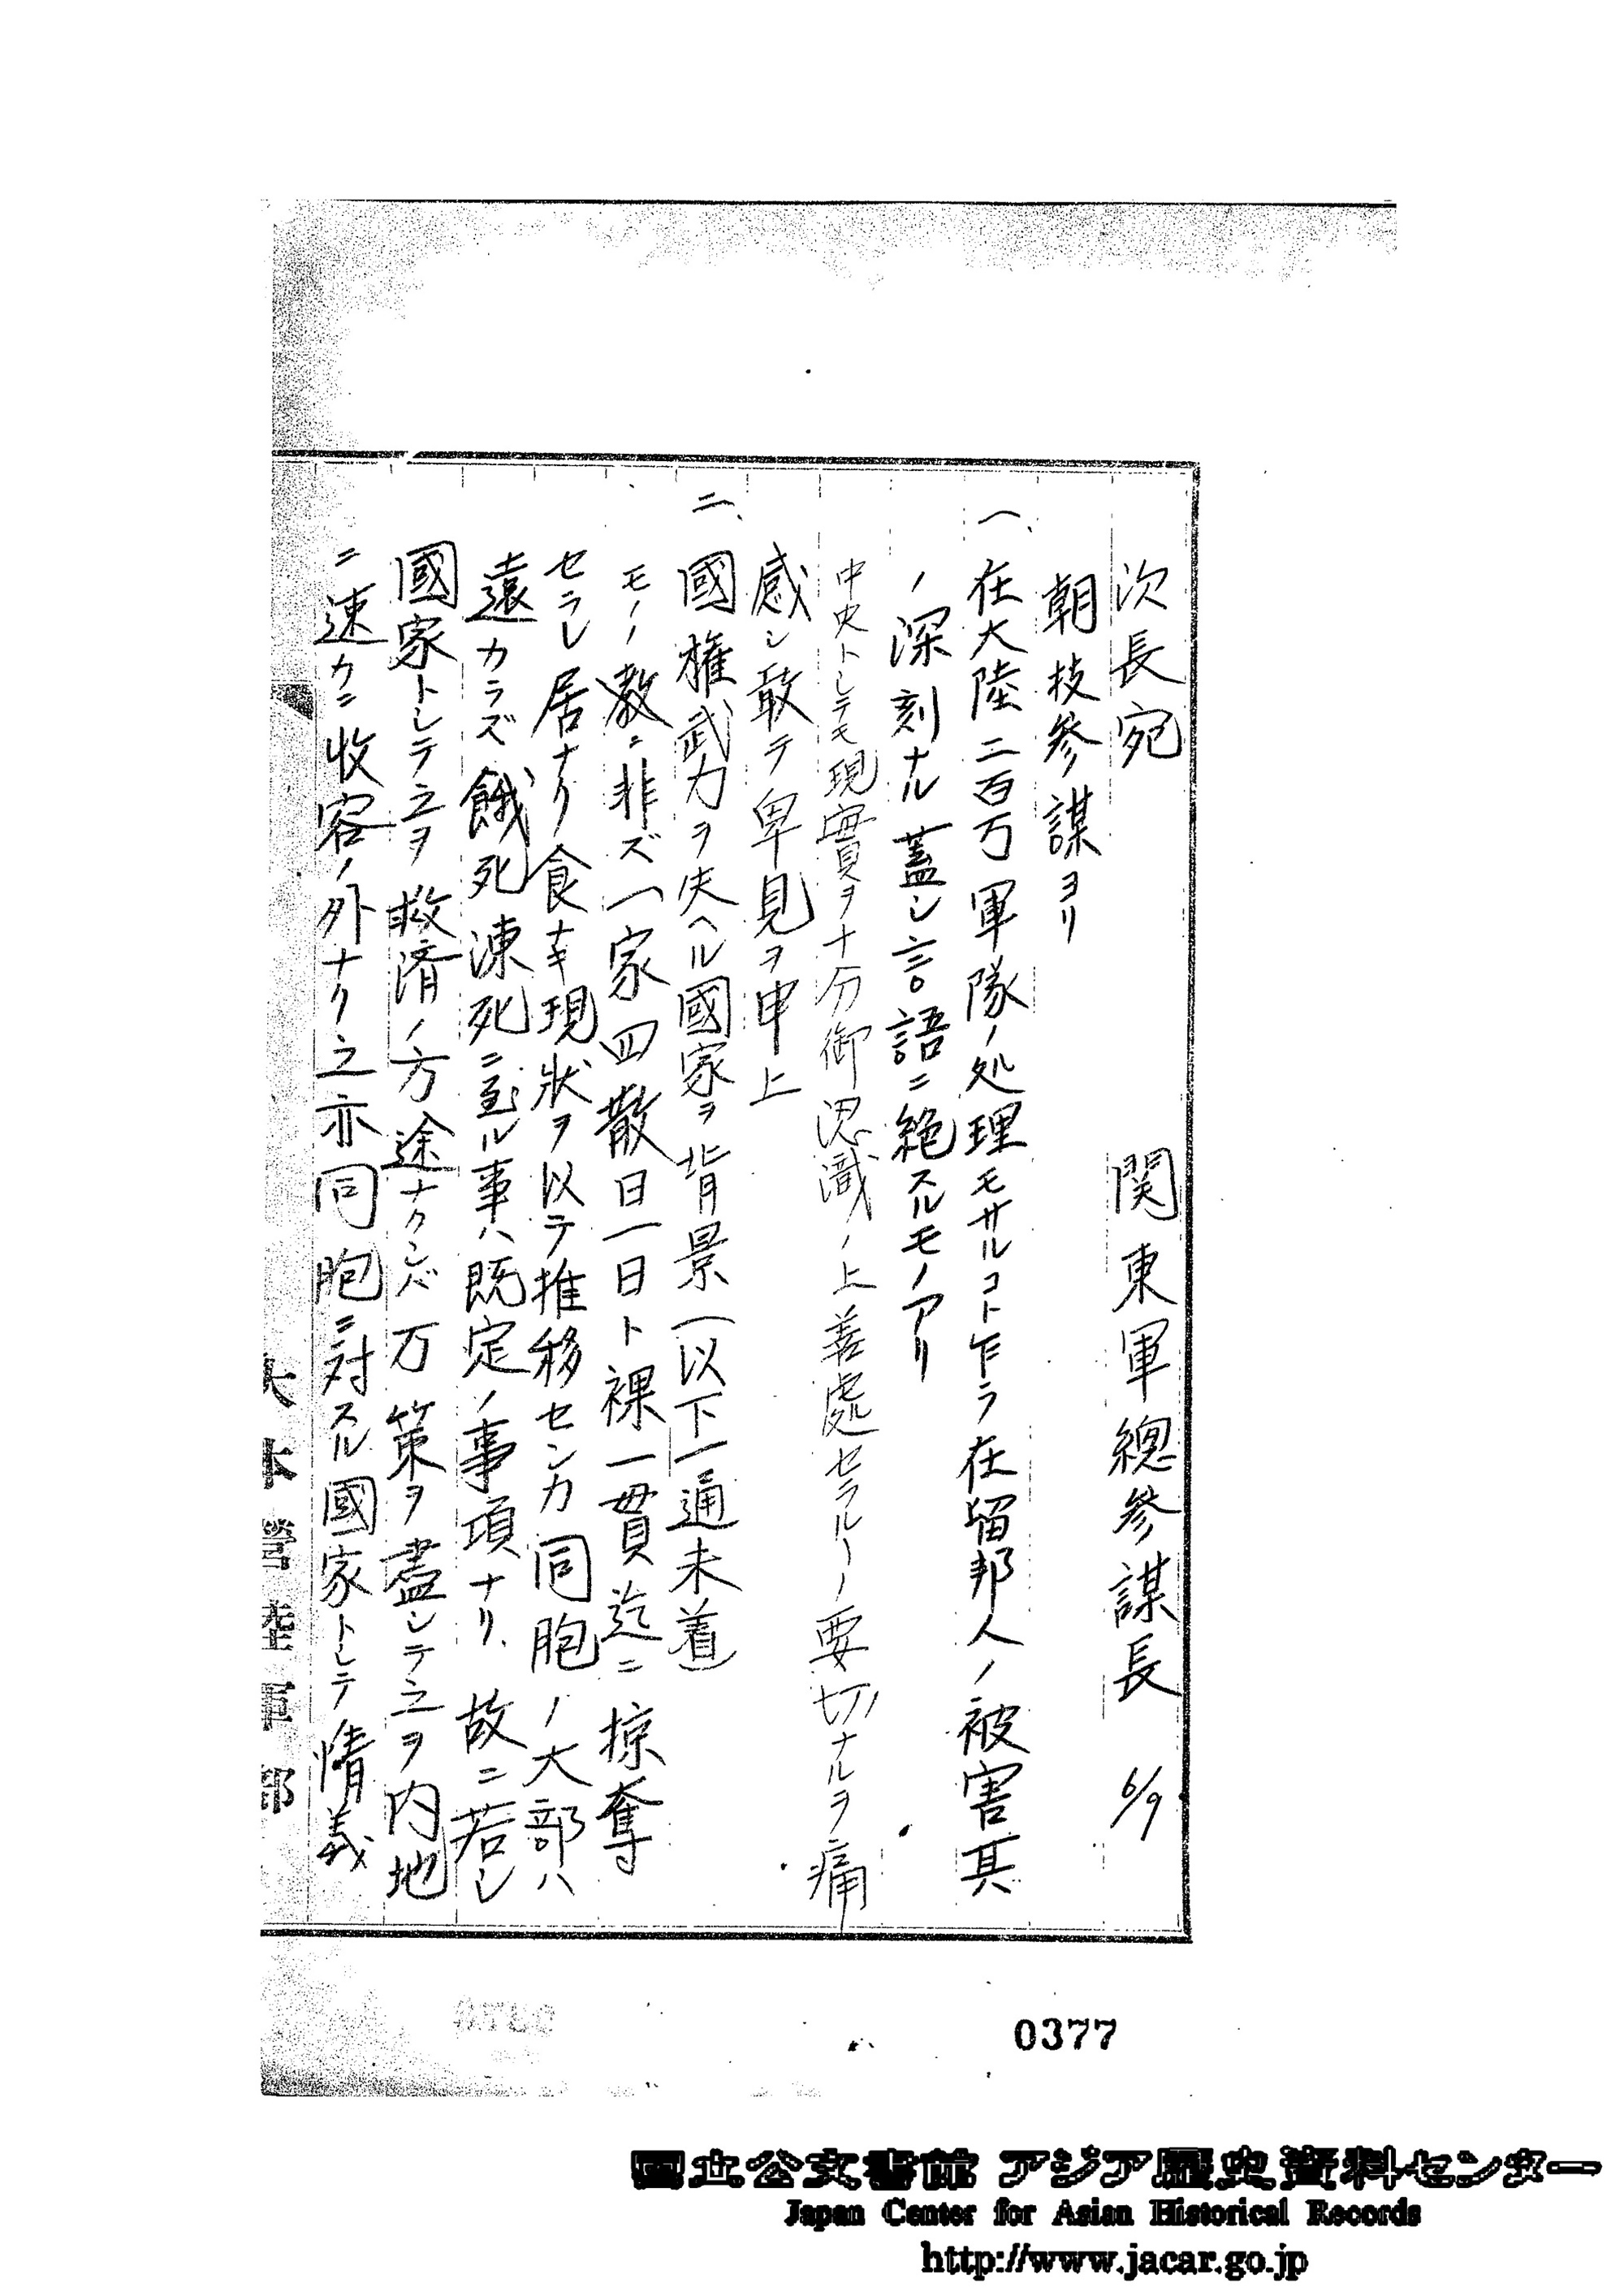 次長宛　関東軍總參謀長　6/9
朝枝參謀ヨリ
一、在大陸二百万軍隊ノ処理モサルコト乍ラ在留邦人ノ被害其
ノ深刻ナル蓋シ言語ニ絶スルモノアリ
中央トシテモ現實ヲ十分御認識ノ上善處セラルヽノ要切ナルヲ痛
感シ敢テ卑見ヲ申上
二、國権武力ヲ失ヘル國家ヲ背景（以下一通未着）
モノ教ニ非ズ一家四散日一日ト裸一貫迄ニ掠奪
セラレ居ナリ食ナキ現狀ヲ以テ推移センカ同胞ノ大部ハ
遠カラズ餓死凍死ニ至ル事ハ既定ノ事項ナリ、故ニ若シ
國家トシテ之ヲ救済ノ方途ナクンバ万策ヲ盡シテ之ヲ内地
ニ速カニ收容ノ外ナク之亦同胞ニ対スル國家トシテ情義
大本營陸軍部
0377
国立公文書館 アジア歴史資料センター
Japan Center for Asian Historical Records
http://www.jacar.go.jp